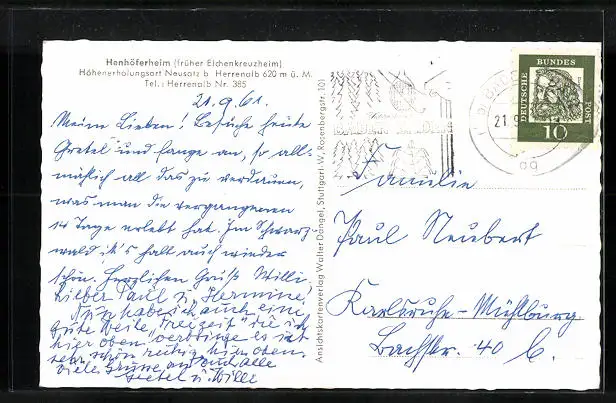 Henhöferheim (früher Eichenkreuzheim)
Höhenerholungsort Neusatz b Herrenalb 620 m ü. M.
Tel.: Herrenalb Nr. 385
21.9.61.
Meine Lieben! Besuche heute
Gretel und fange an, so all-
mählich all das zu verdauen,
was man die vergangenen
14 Tage erlebt hat. Im Schwarz-
wald ist's halt auch wieder
schön. Herzlichen Gruß Willi.
Lieber Paul u. Hermine,
Nun habe ich auch eine
gute Weile, "Freizeit" die ich
hier oben verbringe es ist
sehr schön ruhig hier oben.
viele Grüße an Euch alle
Gretel u. Willi
Ansichtskartenverlag Walter Dangel, Stuttgart W, Rosenbergstr. 101
DEUTSCHE BUNDES POST
10
21.9
Familie
Paul Neubert
Karlsruhe-Mühlburg
Bachstr. 40 b.